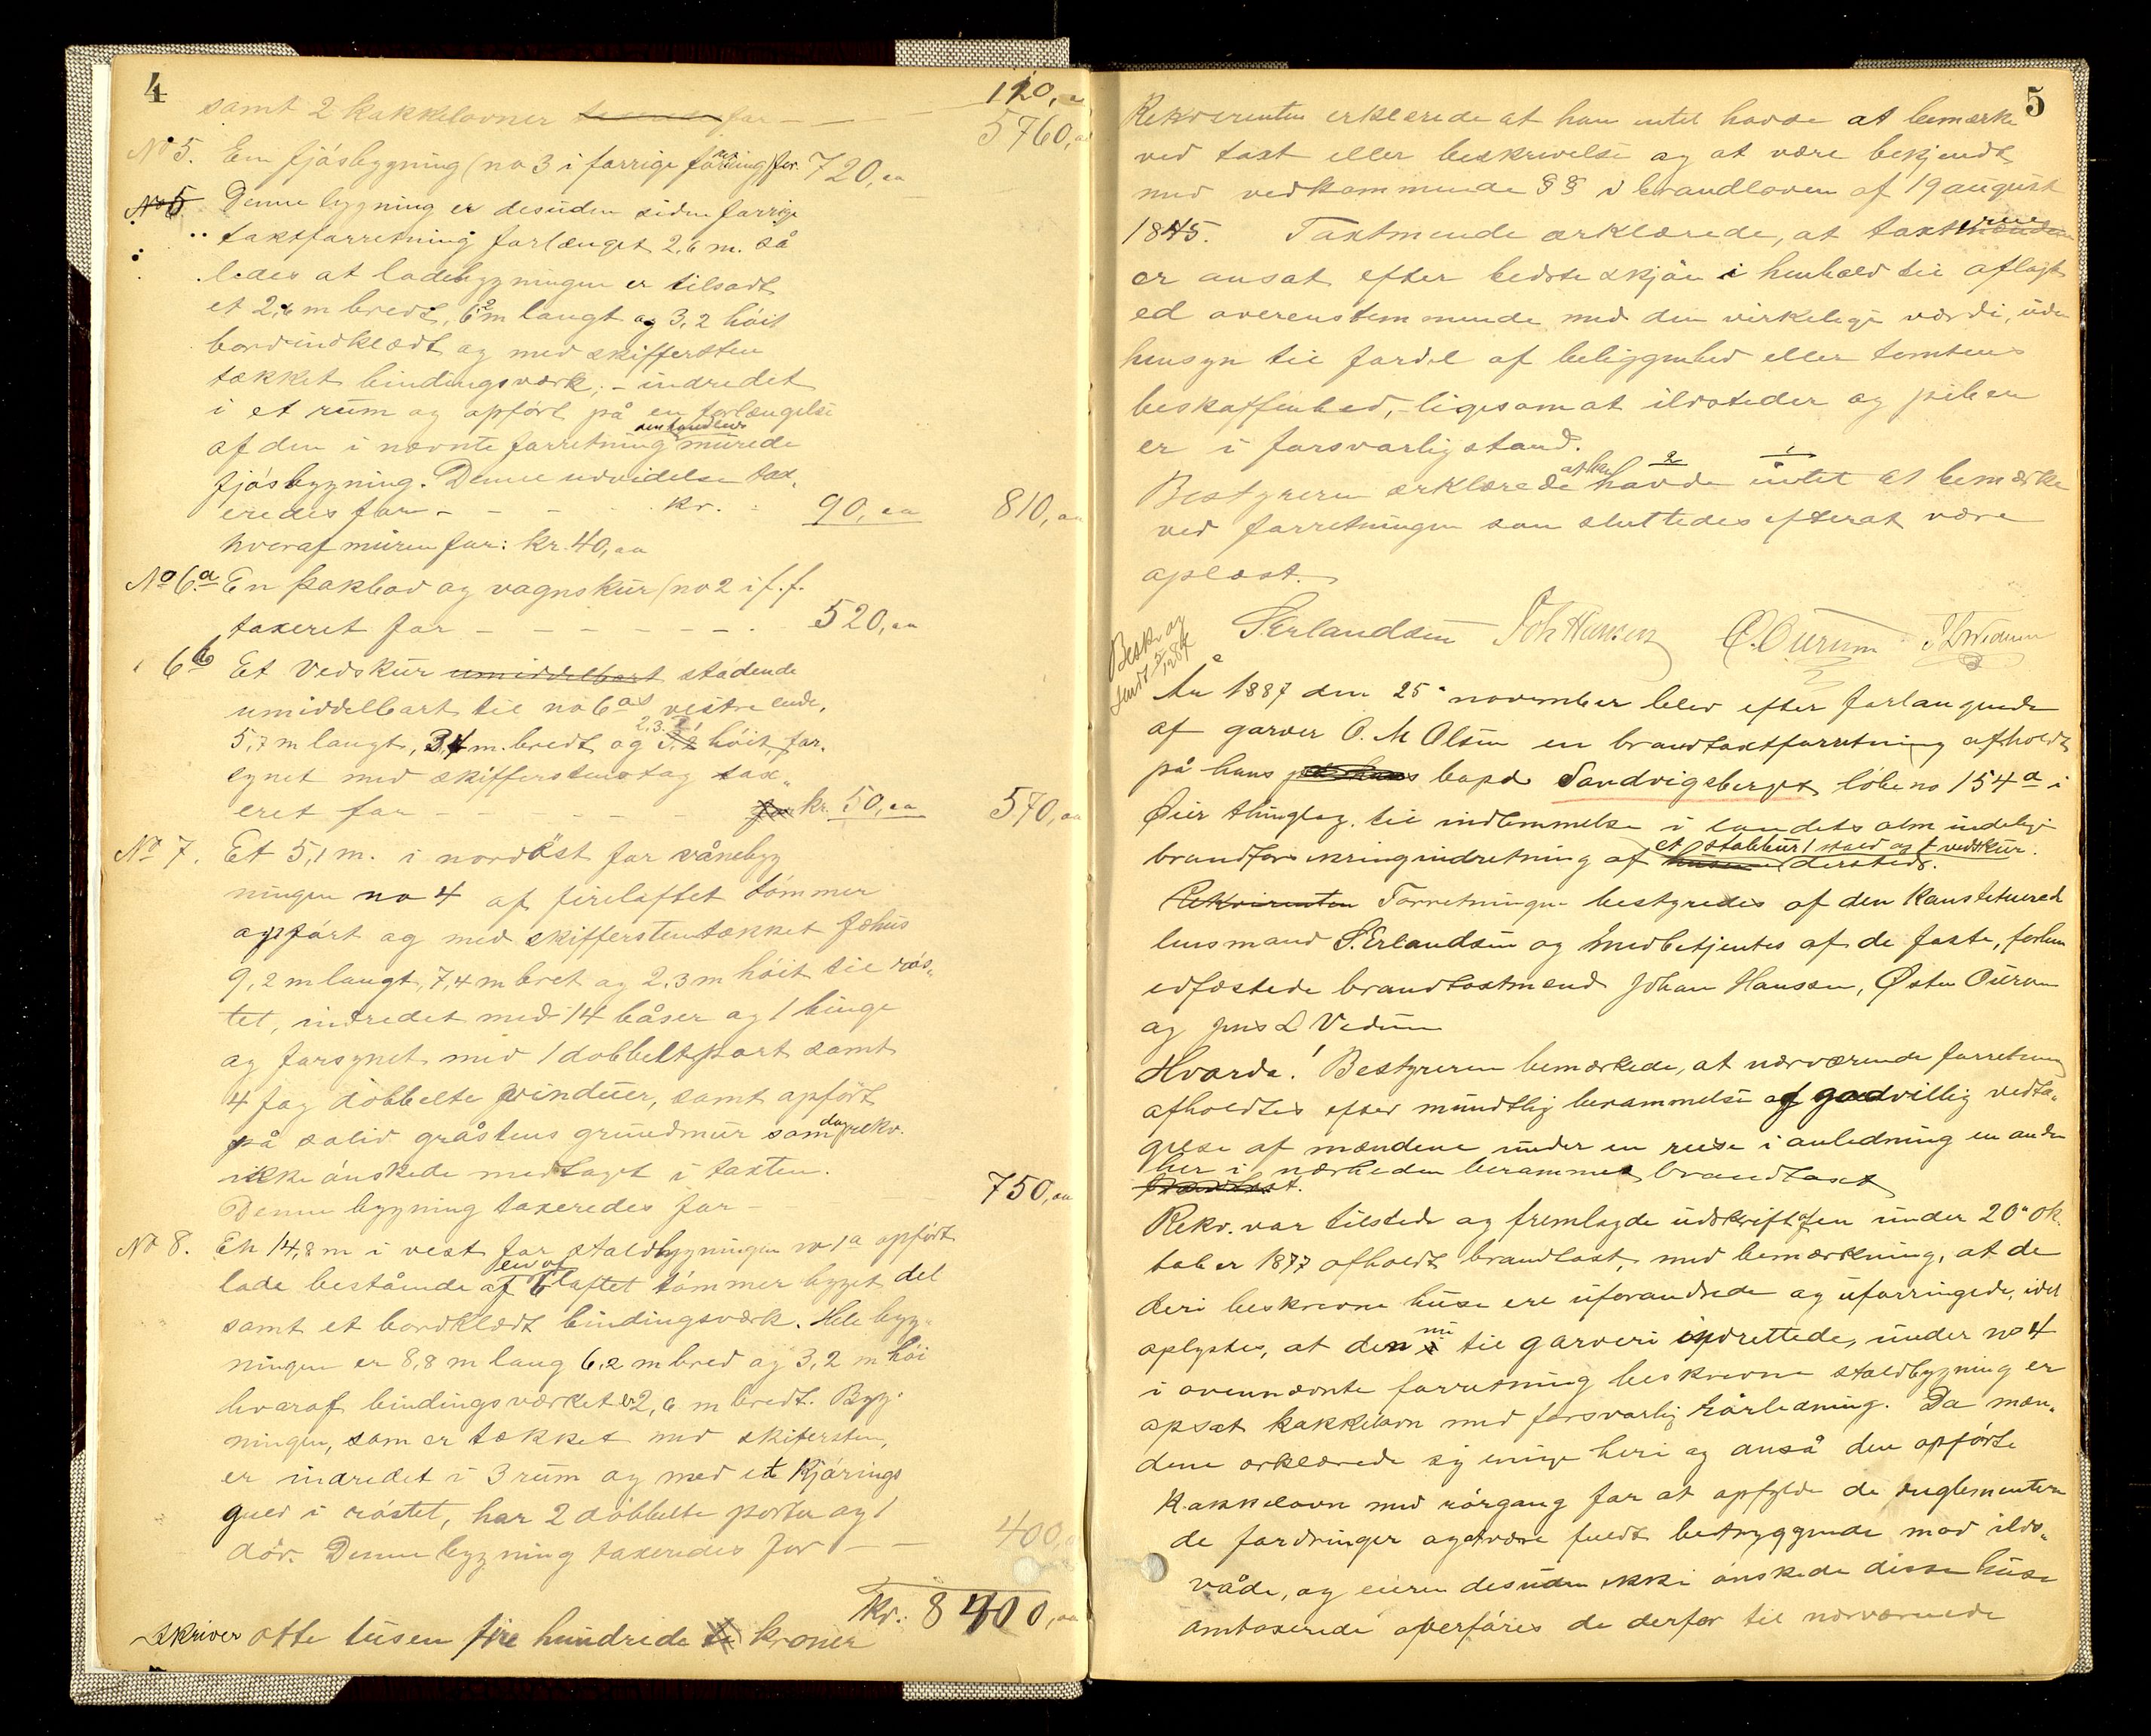 4
110,
samt 2 kakkelovner for — —
5760,
No 5. En fjøsbygning (no 3 i forrige forretning) for 720,oo
Denne bygning er desuden siden forrige
taksforretning forlænget 2,6 m. så
ledes at ladebygningen er tilsadt
et 2,6 m bredt, langt og 3,2 höit
bordindklædt og med skiffersten
tækket bindingsværk; - indredet
i et rum og opført på en forlængelse
af den i nævnte forretning murede
fjøsbygning. Denne udvidelse tax-
eredes for - - - kr. 90,oo 810,oo
hvoraf muren for: kr. 40,oo
No 6a En pakbod og vagnskur (no 2 i f.f.
taxeret for - - - - - - 520,oo
6b Et Vedskur umiddelbart stødende
umiddelbart til no 6as vestre ende,
5,7 m langt, 3,4 m. bredt og 2,3 höit, for-
synet med skifferstenstag tax-
eret for - - - - - - kr. 50,oo 570,oo
No 7. Et 5,1 m. i nordöst for vånebyg
ningen no 4 af firelaftet tømmer
opført og med skifferstentækket fæhus
9,2 m langt, 7,4 m bret og 2,3 m höit til røs-
tet, indredet med 14 båser og 1 binge
og forsynet med 1 dobbeltport samt
4 fag dobbelte vinduer, samt opført
på solid gråstens grundmur som dog rekv.
ikke ønskede medtaget i taxten.
Denne bygning taxeredes for - 750,oo
No 8. En 14,8 m i vest for staldbygningen no 1a opført
lade bestående af en af laftet tømmer bygget del
samt et bordklædt bindingsværk. Hele byg-
ningen er 8,8 m lang 6,2 m bred og 3,2 m höi
hvoraf bindingsværket er 2,6 m bredt. Byg-
ningen, som er tækket med skifersten,
er indredet i 3 rum og med et Kjørings
gulv i røstet, har 2 dobbelte porter og 1
dør. Denne bygning taxeredes for — — 400,
Kr. 8400,oo
skriver otte tusen fire hundrede kroner
5
Rekvirenten erklærede at han intet havde at bemærke
ved taxt eller beskrivelse og at være bekjendt
med vedkommende §§ i brandloven af 19 august
1845. Taxtmænde erklærede, at taxterne
er ansat efter bedste skjøn i henhold til aflagt
ed overenstemmende med den virkelige værdi, uden
hensyn til fordel af beliggenhed eller tomtens
beskaffenhed, - ligesom at ildsteder og piben
er i forsvarlig stand.
Bestyreren erklærede at han havde intet at bemærke
ved forretningen som sluttedes efterat være
oplæst.
S. Erlandsen Joh Hansen Ø. Ourum J L Vedum
År 1887 den 25 november blev efter forlangende
af garver O. M Olsen en brandtaxtforretning afholdt
på hans bopæl Sandvigsberget løbeno 154a i
Øier thinglag. til indlemmelse i landets almindelige
brandforsikringindretning af et stabbur 1 stald og 1 vedskur. dersteds.
Rekvirenten Forretningen bestyredes af den Konstituerede
lensmand S. Erlandsen og medbetjentes af de faste, forhen
edfæstede brandtaxtmænd Johan Hanssen, Østen Ourum
og Jens L Vedum
Hvorda! Bestyreren bemærkede, at nærværende forretning
afholdtes efter mundtlig berammelse og godvillig vedta-
gelse af mændene under en reise i anledning en anden
her i nærheden berammet brandtaxt
Rekv. var tilstede og fremlagde udskrift af en under 20 ok-
tober 1877 afholdt brandtaxt, med bemærkning, at de
deri beskrevne huse ere uforandrede og uforringede, idet
oplystes, at den nu til garveri indrettede, under no 4
i ovennævnte forretning beskrevne staldbygning er
opsat kakkelovn med forsvarlig rørledning. Da mæn-
dene erklærede sig enige heri og anså den opførte
Kakkelovn med rørgang for at opfylde de reglementere
de fordringer og at være fuldt betryggende mod ilds-
våde, og eieren desuden ikke ønskede disse huse
omtaxerede overføres de derfor til nærværende